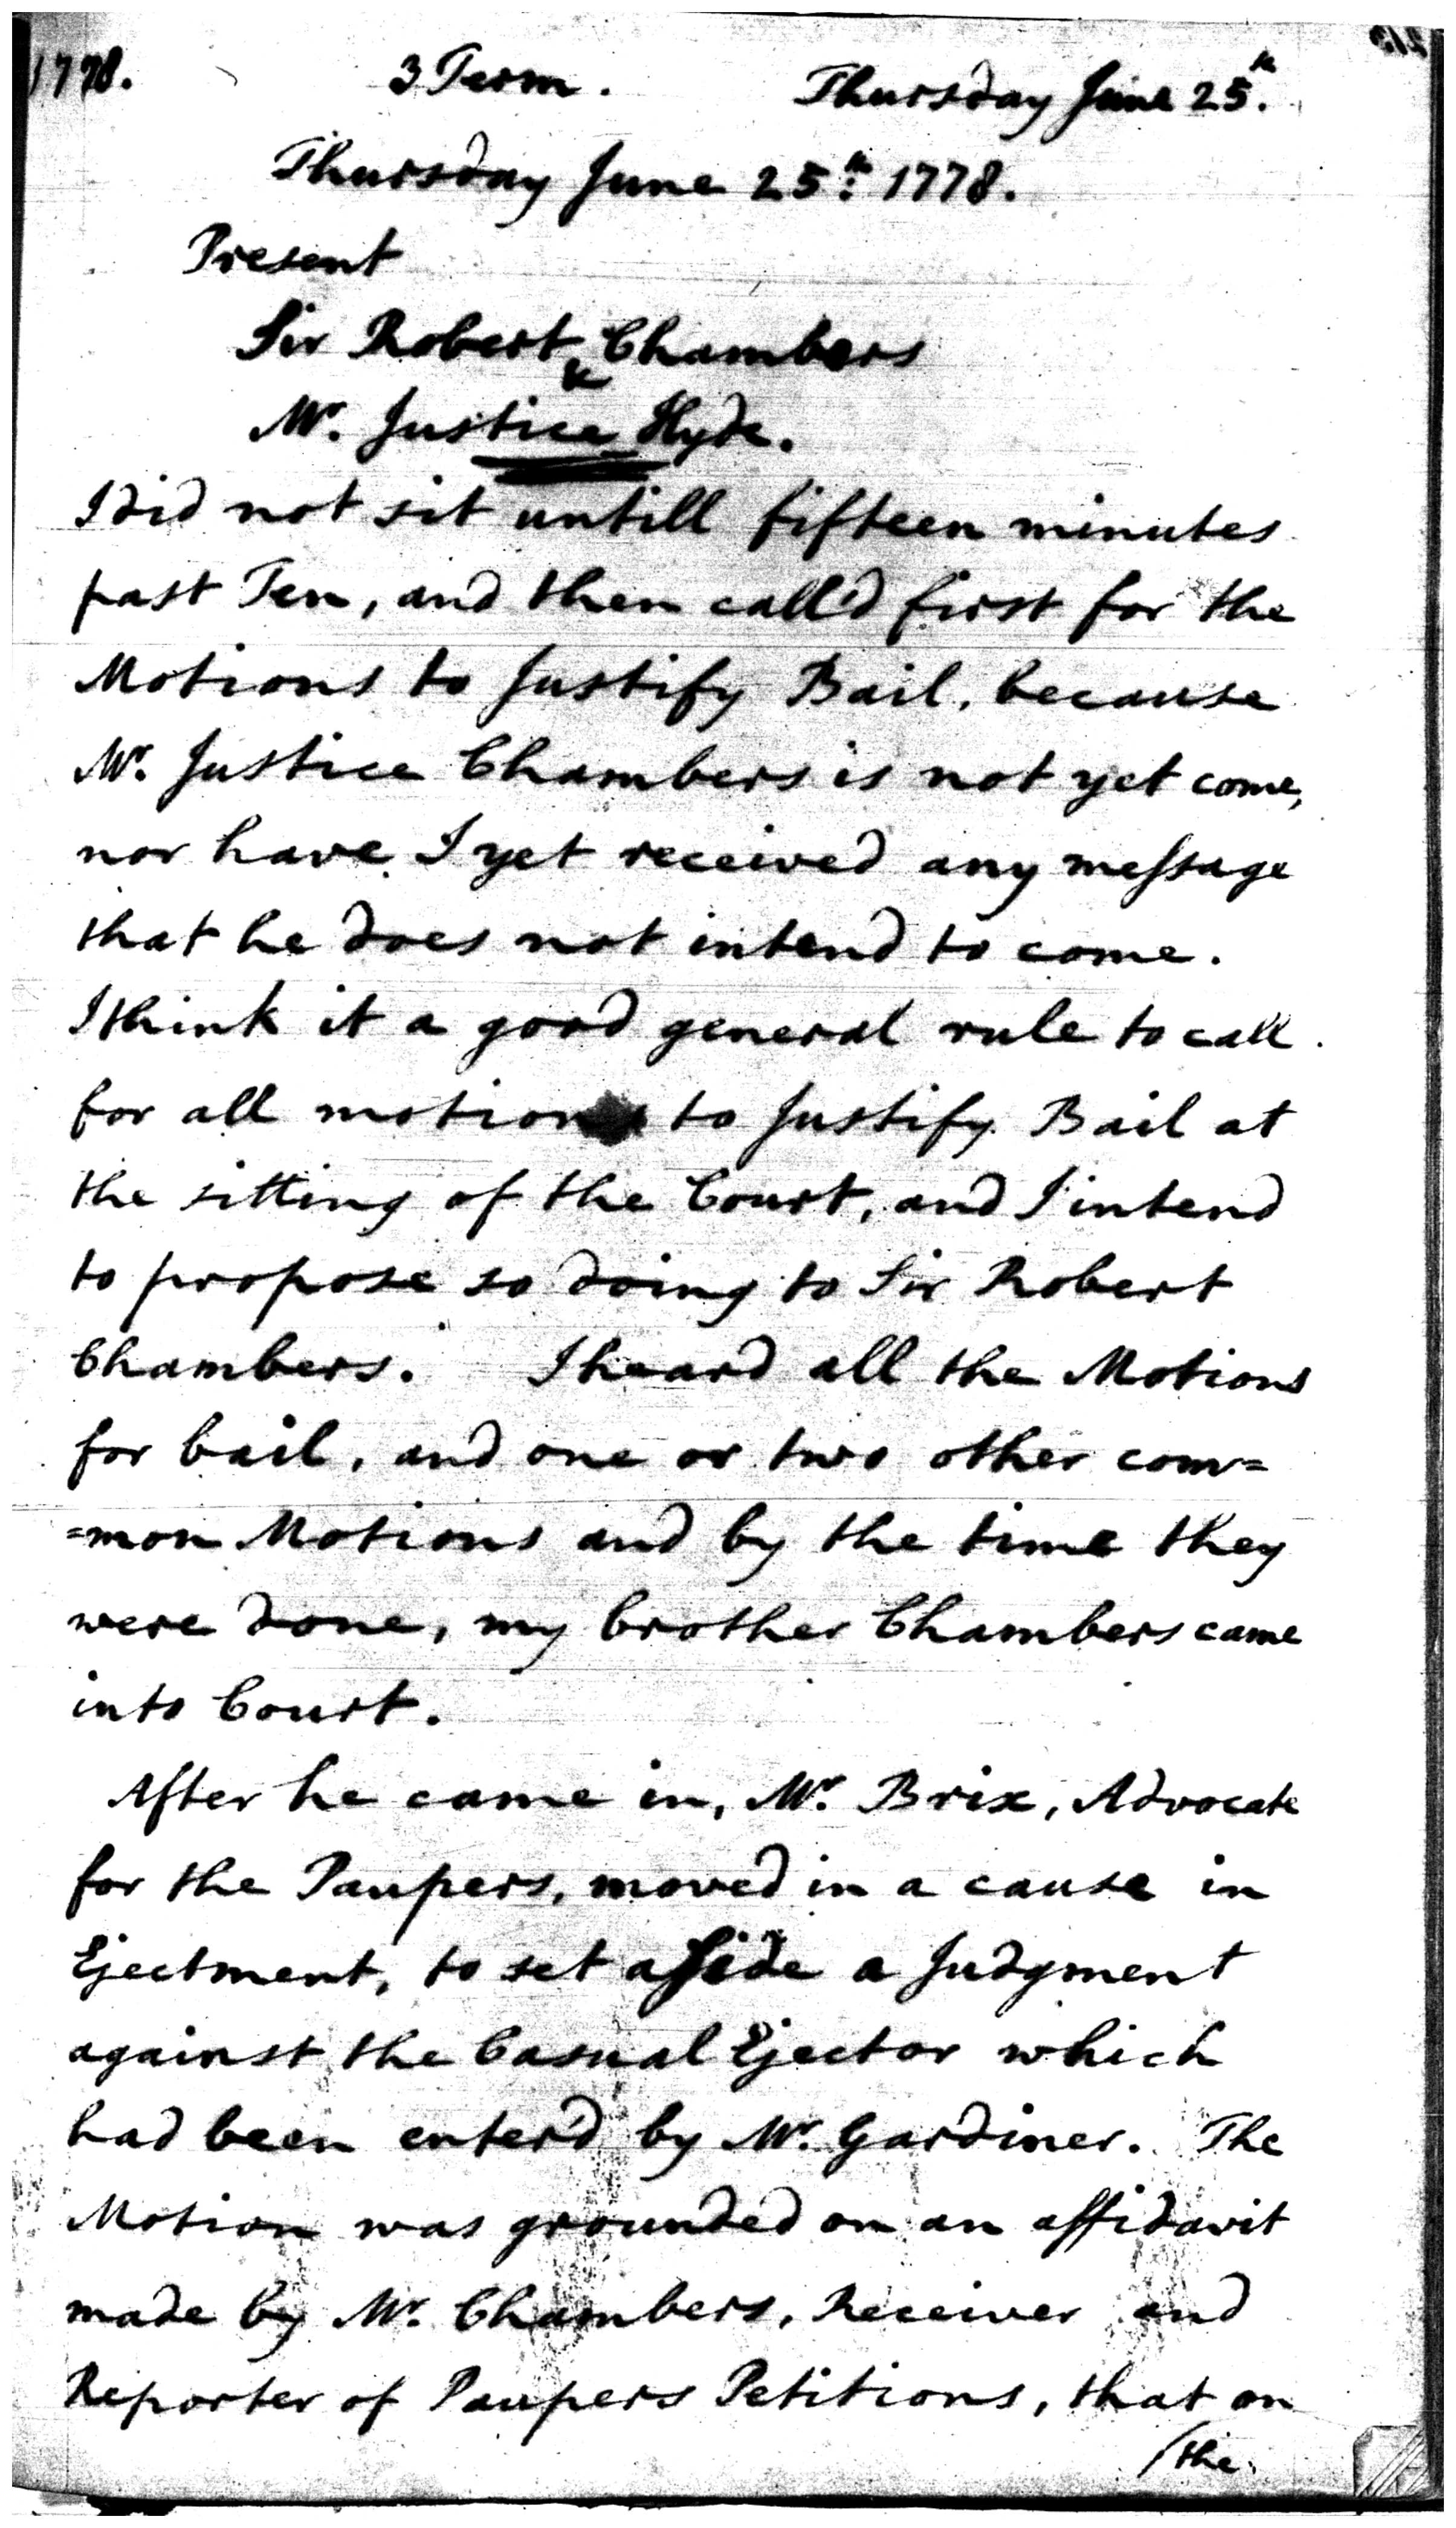 1778. 3 Term. Thursday June 25.th
Thursday June 25.th 1778.
Present
Sir Robert Chambers
&
Mr. Justice Hyde.
I did not sit untill fifteen minutes
past Ten, and then call'd first for the
Motions to Justify Bail, because
Mr. Justice Chambers is not yet come,
nor have I yet received any meſsage
that he does not intend to come.
I think it a good general rule to call
for all motions to Justify Bail at
the sitting of the Court, and I intend
to propose so doing to Sir Robert
Chambers. I heard all the Motions
for bail, and one or two other com=
=mon Motions and by the time they
were done, my brother Chambers came
into Court.
After he came in, Mr. Brix, Advocate
for the Paupers, moved in a cause in
Ejectment, to set aſide a Judgment
against the Casual Ejector which
had been enter'd by Mr. Gardiner. The
Motion was grounded on an affidavit
made by Mr. Chambers, Receiver and
Reporter of Paupers Petitions, that on
/the.